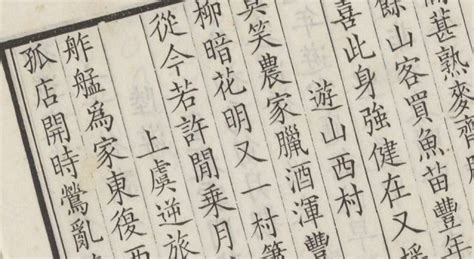 甚熟麥
餘山客買魚苗豐年
喜此身強健在又
遊山西村
莫笑農家臘酒渾豐
柳暗花明又一村簫
從今若許閒乘月
上虞逆旅
舴艋爲家東復西
孤店開時鶯亂